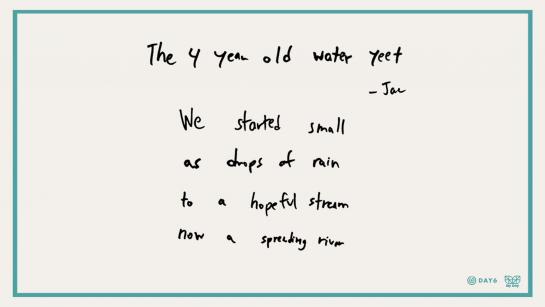 The 4 year old water yeet
– Jae
We started small
as drops of rain
to a hopeful stream
now a spreading river
DAY6
My Day